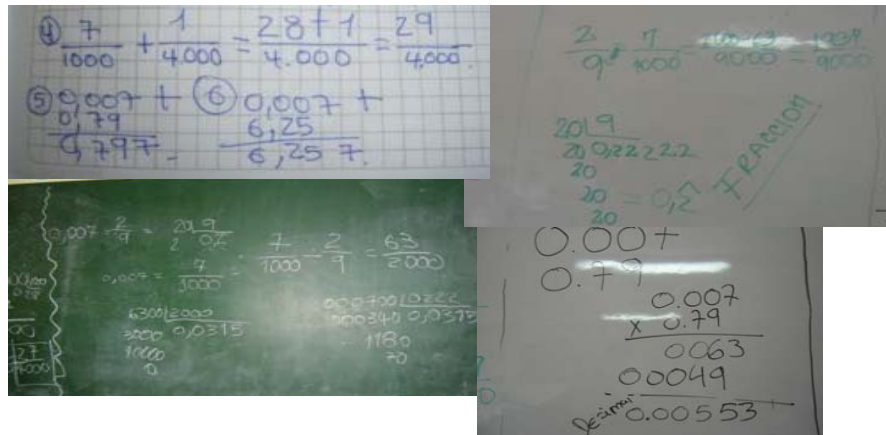 ④ 7/1000 + 1/4.000 = 28+1/4.000 = 29/4,000
⑤ 0,007 + ⑥ 0,007 +
0,79 6,25
0,797 6,257
2/9 + 7/1000 = 9000 = 1934/9000
20 9
20 0,22222
20
20 = 0,2
20
FRACCION
0,007 2/9 = 20 9
2 0,2
7/1000 ÷ 2/9 = 63/2000
0,007 = 7/1000 =
6300 2000
3000 0,0315
10000
0
000700 0222
000340 0,0315
1180
70
27
0.007
0.79
0.007
x 0.79
0063
00049
Desimal 0.00553